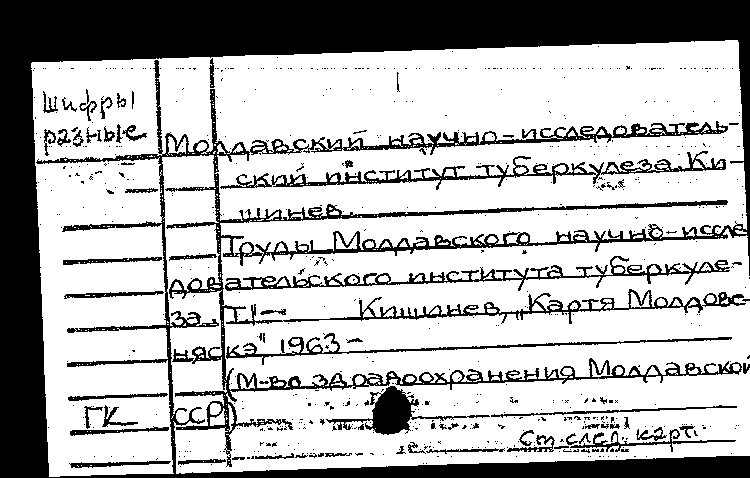 Шифры
разные
Молдавский научно-исследователь-
ский институт туберкулеза. Ки-
шинев.
Труды Молдавского научно-иссле
довательского института туберкуле-
за. Т.1— Кишинев, „Картя Молдове-
няскэ", 1963-
(М-во здравоохранения Молдавской
ГК ССР)
См. след. карт.